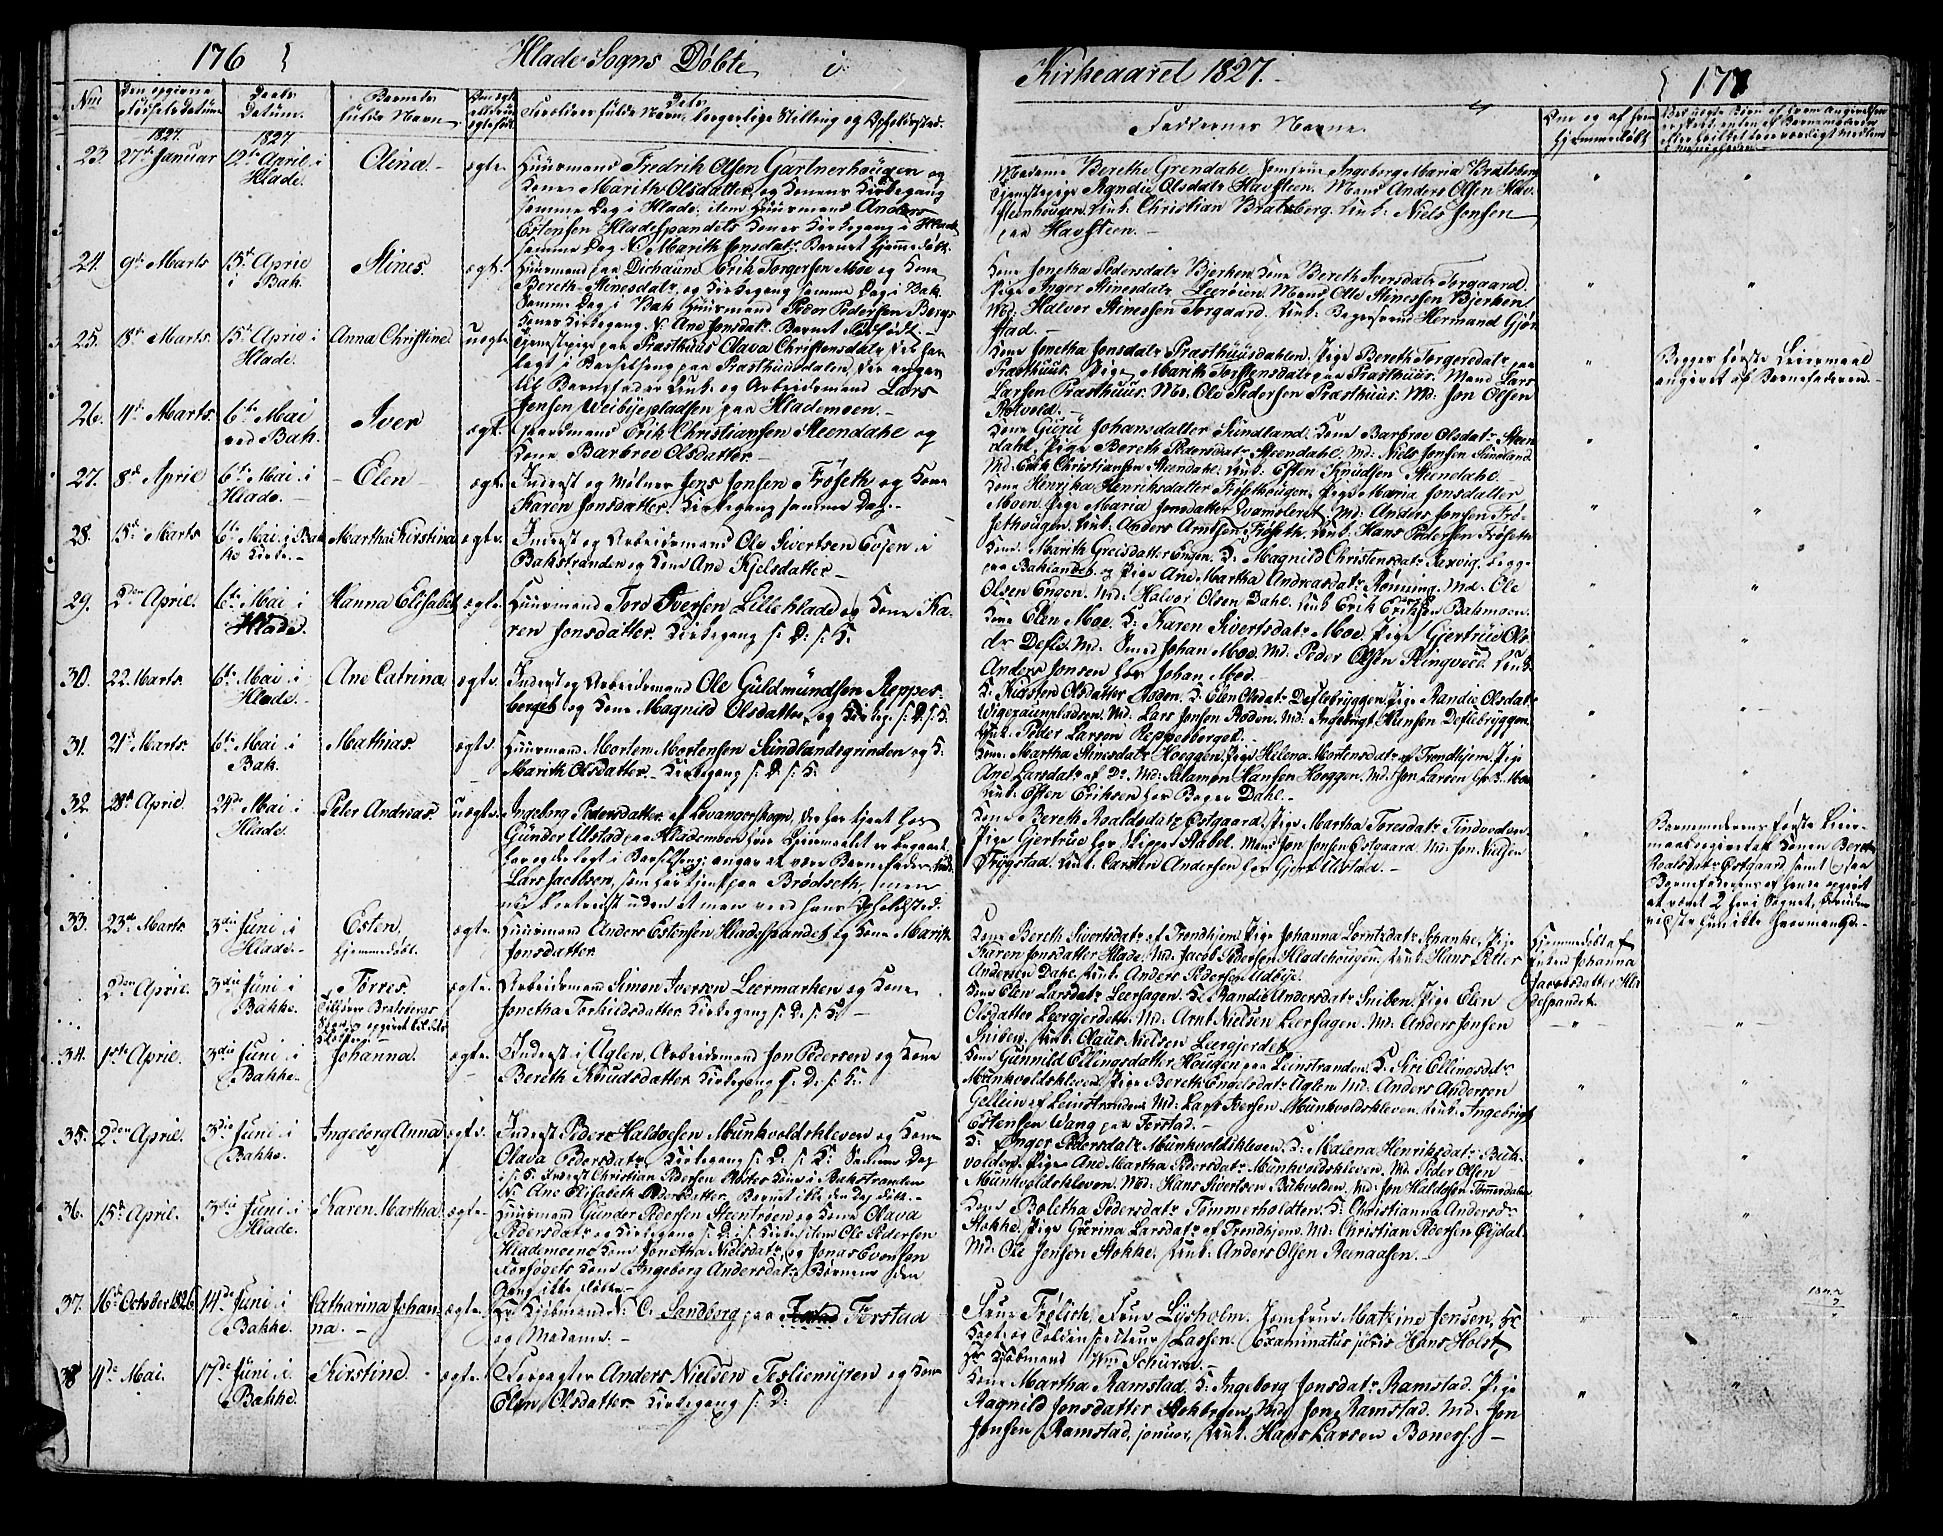 176
Hlade Sogns Døbte i
Kirkeaaret 1827.
177
Den opgivne Fødsels Datum
Daabs Datum.
Barnets fulde Navn
Forældres fulde Navn, borgerlige Stilling og Opholdssted.
Faddernes Navne
1827.
1827
23. 27de Januar 12te April i Hlade. Olina. ægte. Huusmand Fredrik Olsen Gartnerhougen og
Kone Marith Olsdatter, og Konens Kirkegang
samme Dag i Hlade. item Huusmand Anders
Estensen Hladespandets Kones Kirkegang i Hlade
samme Dag N. Marith Jonsdatr. Barnet hjemmedøbt.
Madame Berethe Grendahl, Jomfrue Ingeborg Maria Bratsberg
Tjenestepige Ragndie Olsdatr Havstien. Mand Anders Olsen Hav-
stenhougen. Unk. Christian Bratsberg. Unk. Niels Jonsen
paa Havstien.
24. 9de Marts 15de April i Bak. Stines. ægte.
Huusmand paa Dichaune Erik Torgersen Moe og Kone
Bereth Stinesdatr, og Kirkegang samme Dag i Bak.
Samme Dag i Bak Huusmand Peder Pedersen Bergs
Kones Kirkegang N. Ane Jonsdatr. Barnet
Kone Jonetha Pedersdatr Bjerken, Kone Bereth Iversdatr Torgaard.
Pige Inger Stinesdatr Leerøien. Mand Ole Stinessen Bjerken
Md. Halvor Stinessen Torgaard. Unk. Hermand Gjør-
stad.
25. 18de Marts. 15de April i Hlade. Anna Christine uægte
Tjenestepige paa Præsthuus Olava Christensdatr, der har
lagt i Barselseng paa Præsthuusdalen, der angav
til Barnefader Unk. og Arbeidsmand Lars
Jensen Weibyepladsen paa Hlademoen.
Kone Jonetha Jonsdatr Præsthuusdahlen. Pige Bereth Torgersdatr paa
Præsthuus. Pige Marith Torstensdatr paa Præsthuus. Mand Lars
Larsen Præsthuus. Md. Ole Pedersen Præsthuus. Md. Jon Olsen
Rotvold.
Begges første Leiermaal
angivet af Barnefaderen.
26. 4de Marts. 6te Mai ved Bak. Iver ægte.
Gaardmand Erik Christiansen Steendahl og
Kone Barbroe Olsdatter.
Kone Guru Johansdatter Sundland. Kone Barbroe Olsdatr Steen-
dahl. Pige Bereth Pedersdatr Steendahl. Md. Niels Jonsen Sundland
Md. Erik Christiansen Steendahl. Unk. Esten Knudsen Steendahl.
27. 8de April 6te Mai i Hlade. Elen ægte
Inderst og Møller Jens Jonsen Frøseth og Kone
Karen Jonsdatter. Kirkegang samme Dag.
Kone Henrika Henriksdatter Frøsethougen. Pige Maria Jonsdatter
Moen. Pige Maria Jonsdatter Evamsleret. Md. Anders Jonsen Frø-
sethougen. Unk. Anders Arntsen Frøseth. Unk. Hans Pedersen Frøseth.
28. 15de Marts 6te Mai i Bak- Martha Kirstina ægte.
Inderst og Arbeidsmand Ole Sivertsen Evjen i
Bakstranden og Kone Ane Kjelsdatter
Kone Marith Greisdatr Engen. K. Magnild Christensdatr begge
paa Baklandet og Pige Ane Martha Andreasdatr Rønning. Md. Ole
Olsen Engen. Md. Halvor Olsen Dahl. Unk. Erik Eriksen Bakmoen.
29. 5den April. 6te Mai i Hlade. Hanna Elisabet ægte
Huusmand Tore Iversen Lillehlade og Kone Ka-
ren Jonsdatter. Kirkegang s. D. s. K.
Kone Elen Moe. K. Karen Sivertsdatr Moe. Pige Gjertrue Ols-
dr Defle. Md. Smed Johan Moe. Md. Peder Olsen Ringvee. Unk.
Anders Jonsen hos Johan Moe.
30. 22. Marts. 6te Mai i Hlade. Ane Catrina ægte.
Inderst og Arbeidsmand Ole Guldmundsen Reppes-
berget og Kone Magnild Olsdatter, og Kirkeg. s. D. s. K.
K. Kiersten Olsdatter Roden. K. Elen Olsdatr Deflebryggen. Pige Randie Olsdatr
Wigezaunpladsen. Md. Lars Jonsen Roden. Md. Ingebrigt Hansen Deflebryggen
Unk. Peder Larsen Reppesberget.
31. 21de Marts. 6te Mai i Bak. Mathias. ægte.
Huusmand Morten Mortensen Sundlandsgrinden og K.
Marith Olsdatter. Kirkegang s. D. s. K.
Kone Martha Stinesdatr Hoeggen. Pige Helena Mortensdatr af Trondhjem. Pige
Ane Larsdatr af Do. Md. Salamon Hansen Hoeggen. Md. Jon Larsen
Unk. Esten Eriksen hos Bager Dahl.
32. 28de April. 24de Mai i Hlade. Peter Andreas. uægte.
Ingeborg Pedersdatter af Levangerskogn, der har tjent hos
Gunder Ulstad paa Hlademoen hvor Leiermaalet er begaaet
har og der lagt i Barselseng; angav at være Barnefader Unk.
Lars Jacobsen, som har tjent paa Brødseth, men
nu bortreist uden at man veed hans Opholdsted.
Kone Bereth Roaldsdatr Estgaard, Pige Martha Toresdatr Tindvedvor
Pige Gjertrue hos Lippe Stabel. Mand Jon Jonsen Estgaard. Md. Jon Nielsen
Trøgstad. Unk. Carsten Andersen hos Gjert Ulstad.
Barnemoderens første Leier-
maal opgivet af Konen Bereth
Roalsdatr Estgaard samt
Barnefaderens af hende opgivet
at været 2 Aar i Sognet,
vidste hun ikke
33. 23de Marts 3die Juni i Hlade. Esten, hjemmedøbt. ægte.
Huusmand Anders Estensen Hladespandet og Kone Marith
Jonsdatter.
Kone Bereth Sivertsdatr af Trondhjem. Pige Johanna Lorntzdatr Schanke. Pige
Karen Jonsdatter Hlade. Md. Jacob Pedersen Hladehougen. Unk. Hans Petter
Andersen Dahl. Unk. Anders Pedersen Udbye.
Hjemmedøbt af
Enken Johanna
Jacobsdatter Hla-
despandet.
2den April. 3die Juni i Bakke. Torres. ægte.
Arbeidsmand Simon Iversen Leermarken og Kone
Jonetha Torkildsdatter. Kirkegang s. D. s. K.
Kone Elen Larsdatr Leersagen. K. Randie Andersdatr Sniben. Pige Elen
Olsdatter Leergjerdet. Md. Arnt Nielsen Leersagen. Md. Anders Jonsen
Sniben. Unk. Claus Nielsen Leergjerdet.
34. 1ste April. 3die Juni i Bakke. Johanna. ægte.
Inderst i Uglen, Arbeidsmand Jon Pedersen og Kone
Bereth Knudsdatter. Kirkegang s. D. s. K.
Kone Gunnild Ellingsdatter Hougen paa Leinstranden. K. Siri Ellingsdr
Munkvoldskleven. Pige Bereth Engelsdatr Uglen. Md. Anders Andersen
Gellein af Leinstranden. Md. Lars Iversen Munkvoldskleven. Unk. Ingebrigt
Estensen Wang paa Ferstad.
35. 2den April. 3die Juni i Bakke. Ingeborg Anna ægte.
Inderst Peder Haldosen Munkvoldskleven og Kone
Olava Pedersdatr. Kirkegang s. D. s. K. Samme Dag
i s. K. Inderst Christian Pedersen Røstes Kone i Bakstranden
N. Ane Elisabeth Pedersdatter. Barnet ikke den Dag døbt.
K. Inger Pedersdatr Munkvoldskleven. K. Malena Henriksdatr Buk-
volden. Pige Ane Martha Pedersdatr Munkvoldskleven. Md. Peder Olsen
Munkvoldskleven. Md. Hans Sivertsen Bukvolden. Md. Jon Haldosen Tømmerdalen
36. 15de April. 3die Juni i Hlade. Karen Martha. ægte.
Huusmand Gunder Pedersen Steentrøen og Kone Olava
Pedersdatr og Kirkegang s. D. i s. Kirke, item Ole Pedersen
Hlademoens Kone Jonetha Nielsdatr, og Jonas Evensen
Forsøgets Kone Ingeborg Andersdatr. Børnene den
Gang ikke døbte.
Kone Boletha Pedersdatr Tømmerholdten. K. Christianna Andersdr
Stokke. Pige Gurina Larsdatr af Trondhjem. Md. Christian Pedersen Øysdal.
Md. Ole Jonsen Stokke. Unk. Anders Olsen Reenaasen.
37. 16de October 1826. 14de Juni i Bakke. Catharina Johan-
na. ægte.
Hr. Kjøbmand N. C. Sandborg paa Ferstad
og Madame.
Frue Frølich, Frue Lysholm. Jomfrue Matzine Jensen, Hr.
Kapt. og Toldinspecteur Lassen. Examinatus juris Hans Holst,
Hr. Kjøbmand Wm Schürer.
38. 4de Mai. 17de Juni i Bakke. Kirstine. ægte.
Forpagter Anders Nielsen Tesliemyren og Kone
Elen Olsdatter. Kirkegang s. D.
Kone Martha Ramstad. K. Ingeborg Jonsdatr Ramstad. Pige
Ragnild Jonsdatter Stokbroen. Md. Jon Ramstad. Md. Jon
Jonsen Ramstad, junior, Unk. Hans Larsen Boness.